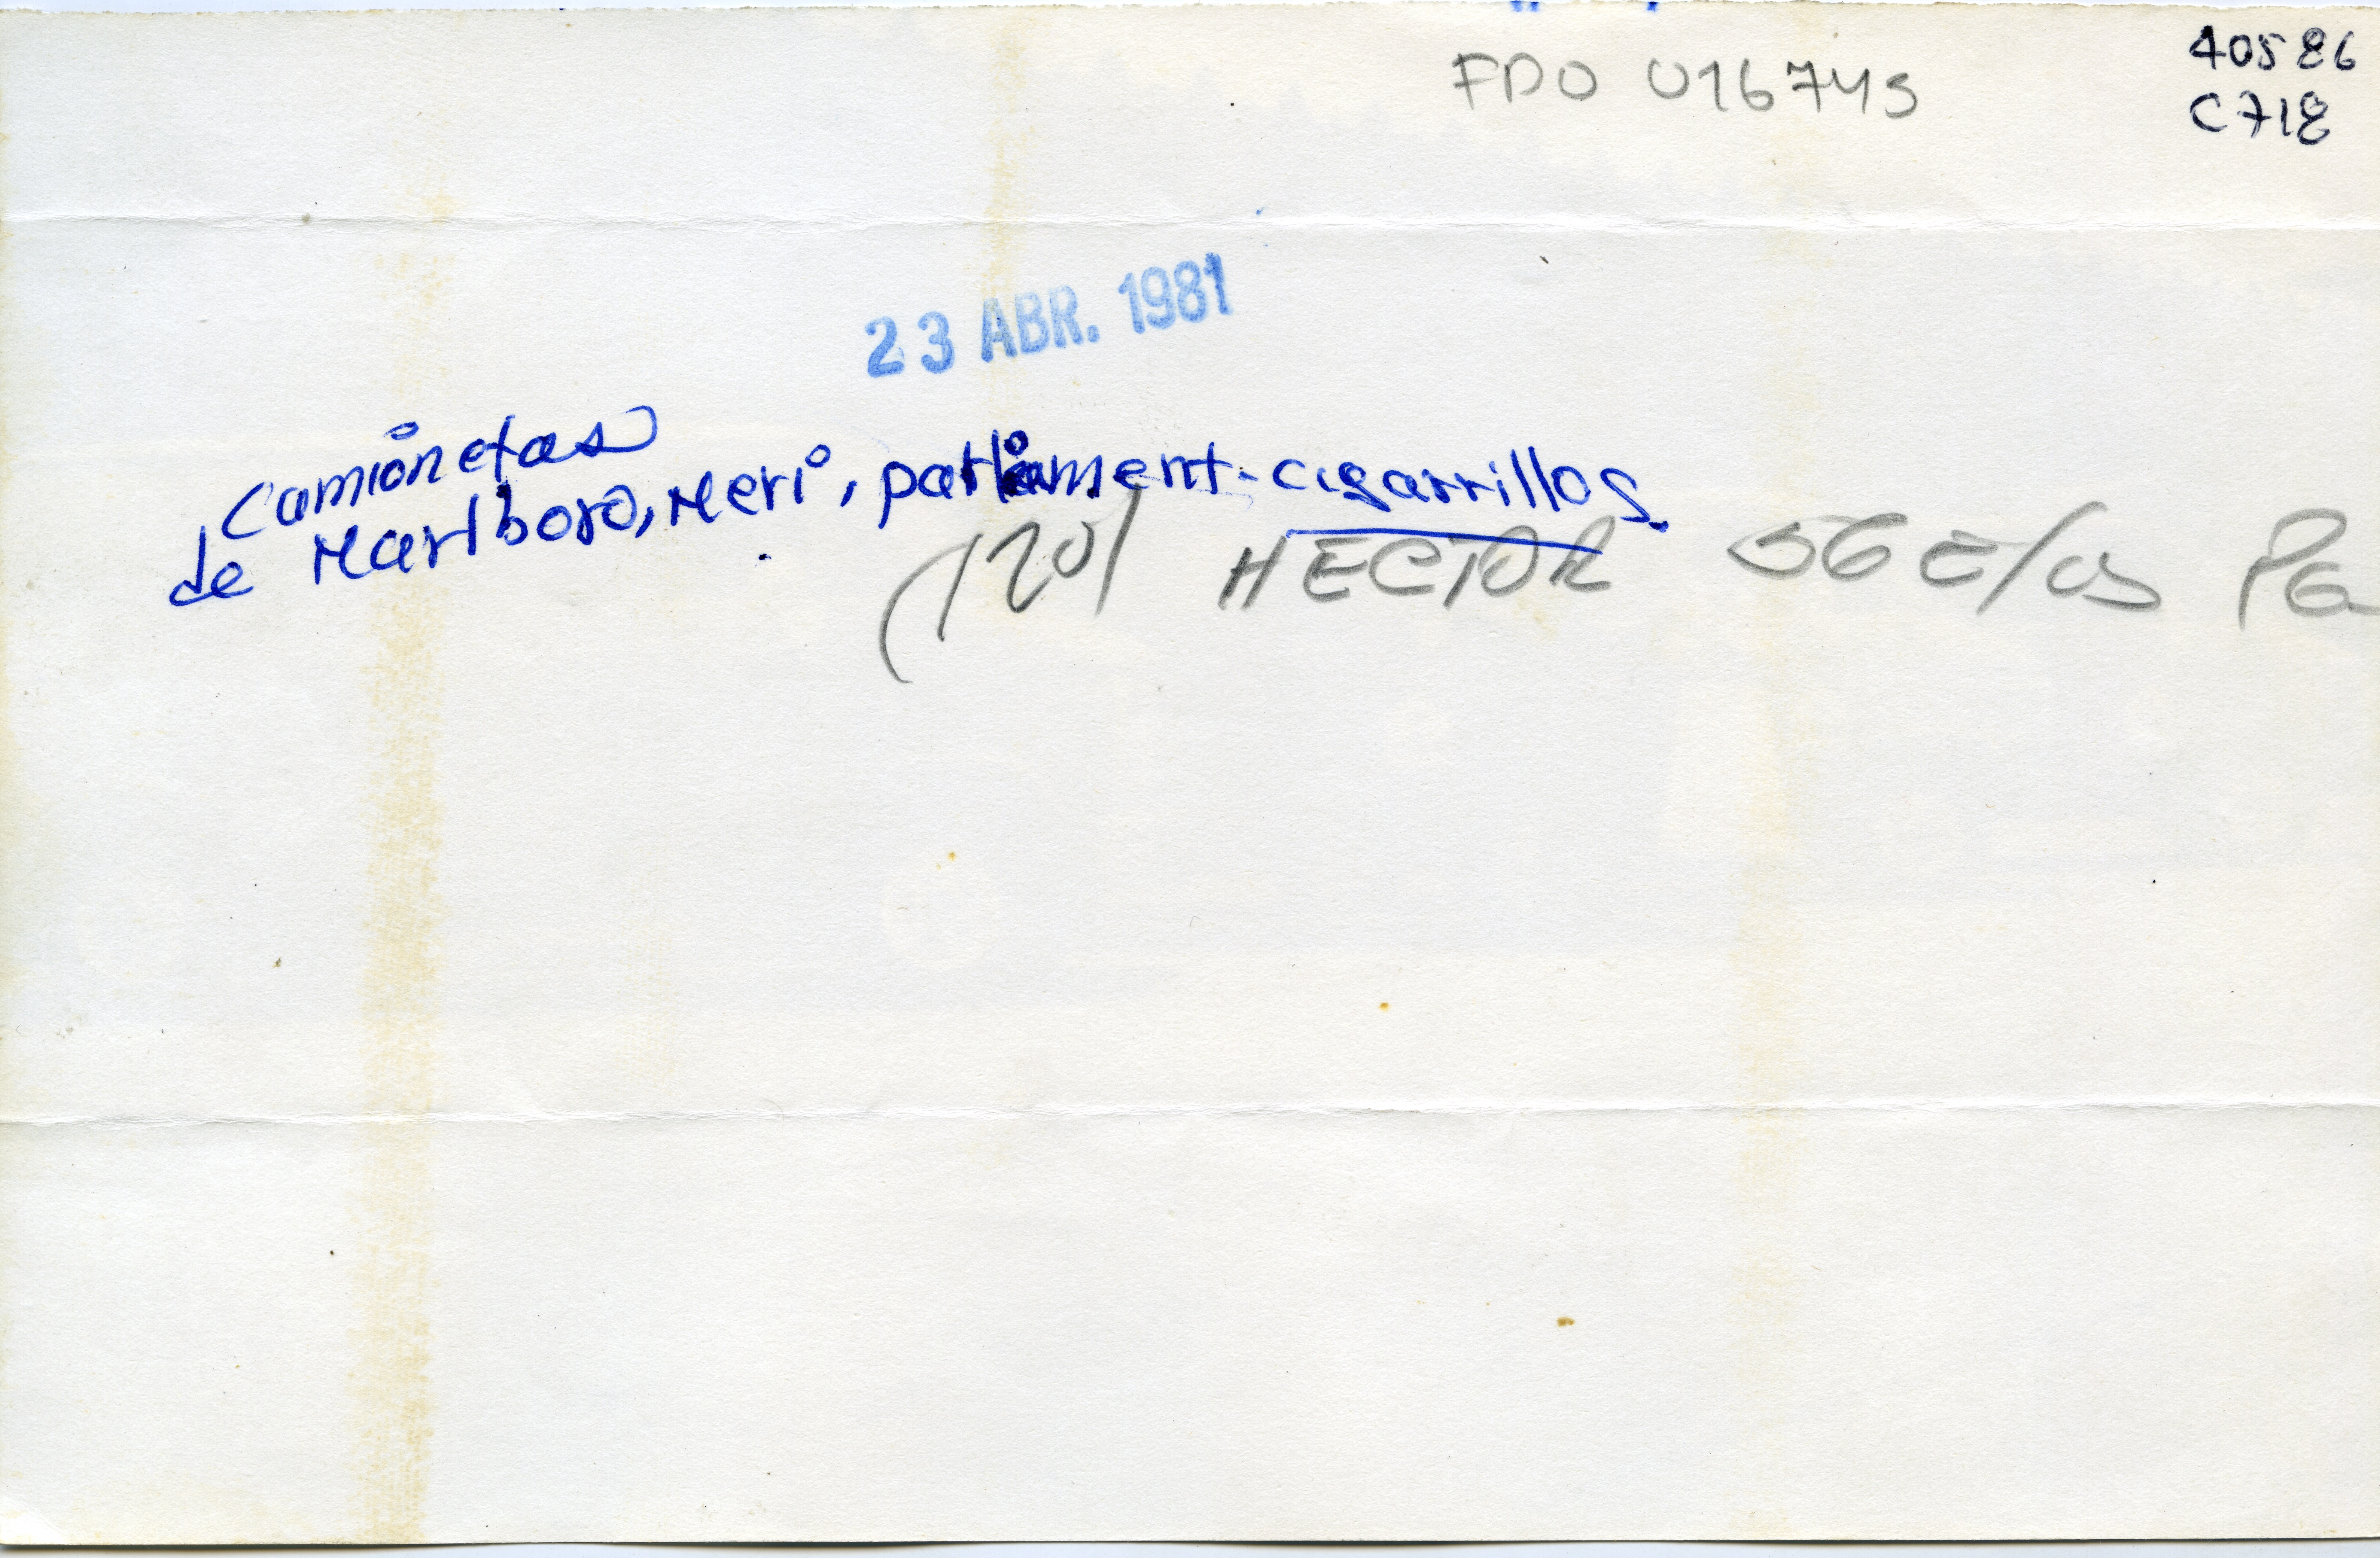 40586
FDO 016743
C718
23 ABR. 1981
Camionetas
de Marlboro, Meri, parliament-cigarrillos.
(120) HECTOR 56 E/OS PG